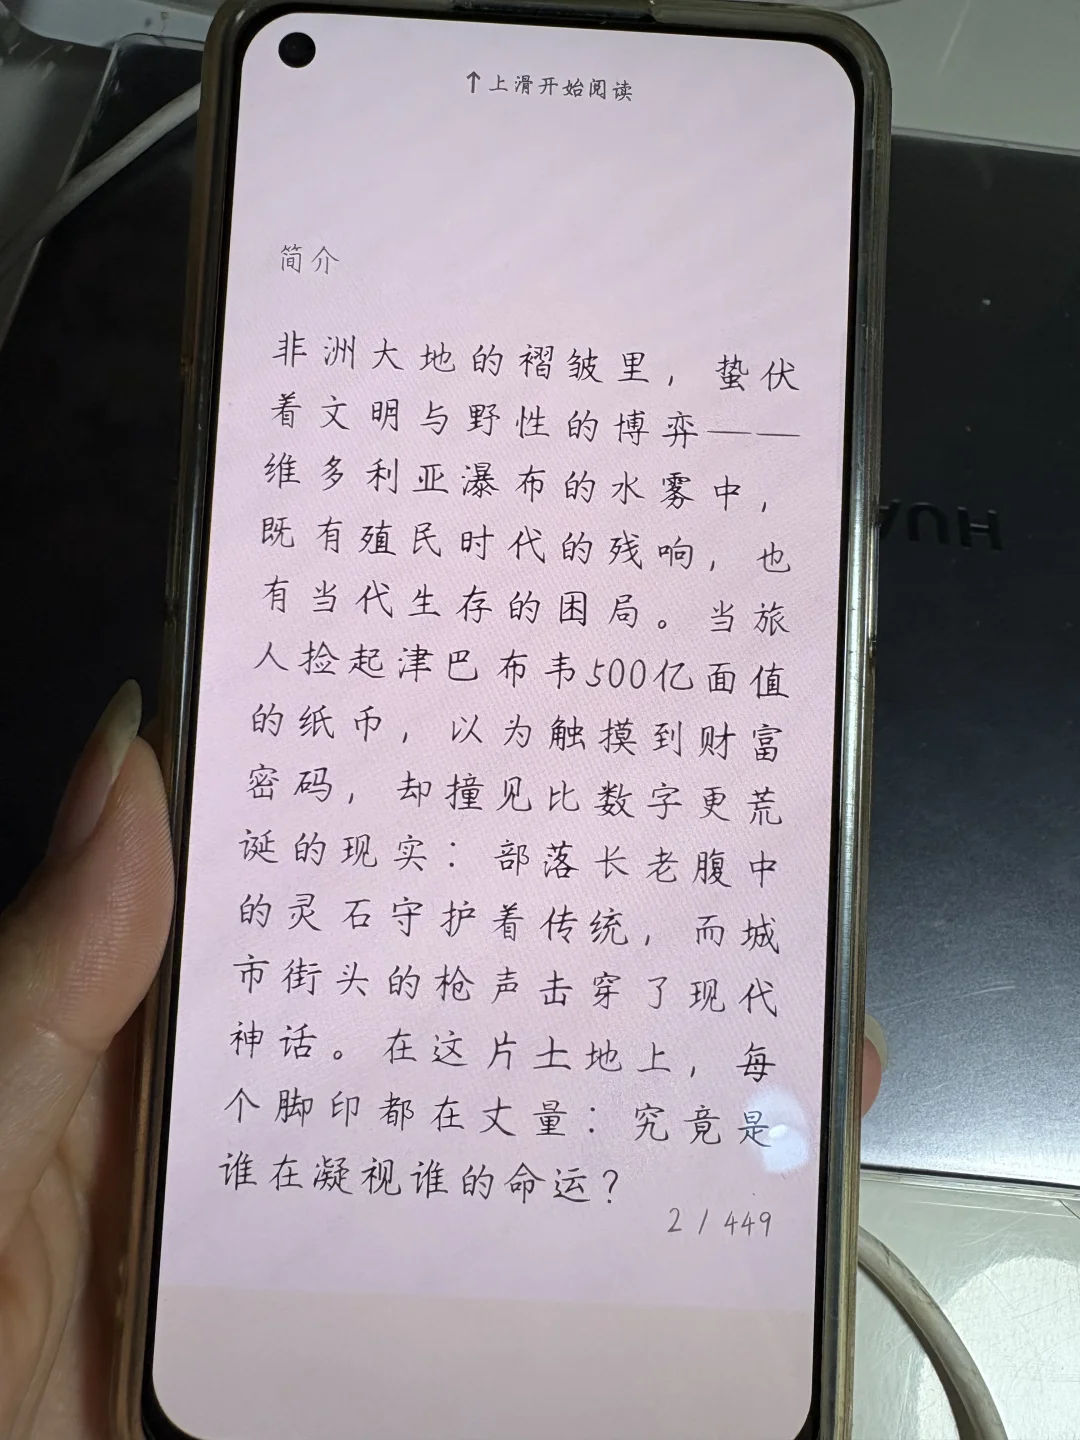 ↑上滑开始阅读
简介
非洲大地的褶皱里，蛰伏
着文明与野性的博弈——
维多利亚瀑布的水雾中，
既有殖民时代的残响，也
有当代生存的困局。当旅
人捡起津巴布韦500亿面值
的纸币，以为触摸到财富
密码，却撞见比数字更荒
诞的现实：部落长老腹中
的灵石守护着传统，而城
市街头的枪声击穿了现代
神话。在这片土地上，每
个脚印都在丈量：究竟是
谁在凝视谁的命运？
2/449
HUA